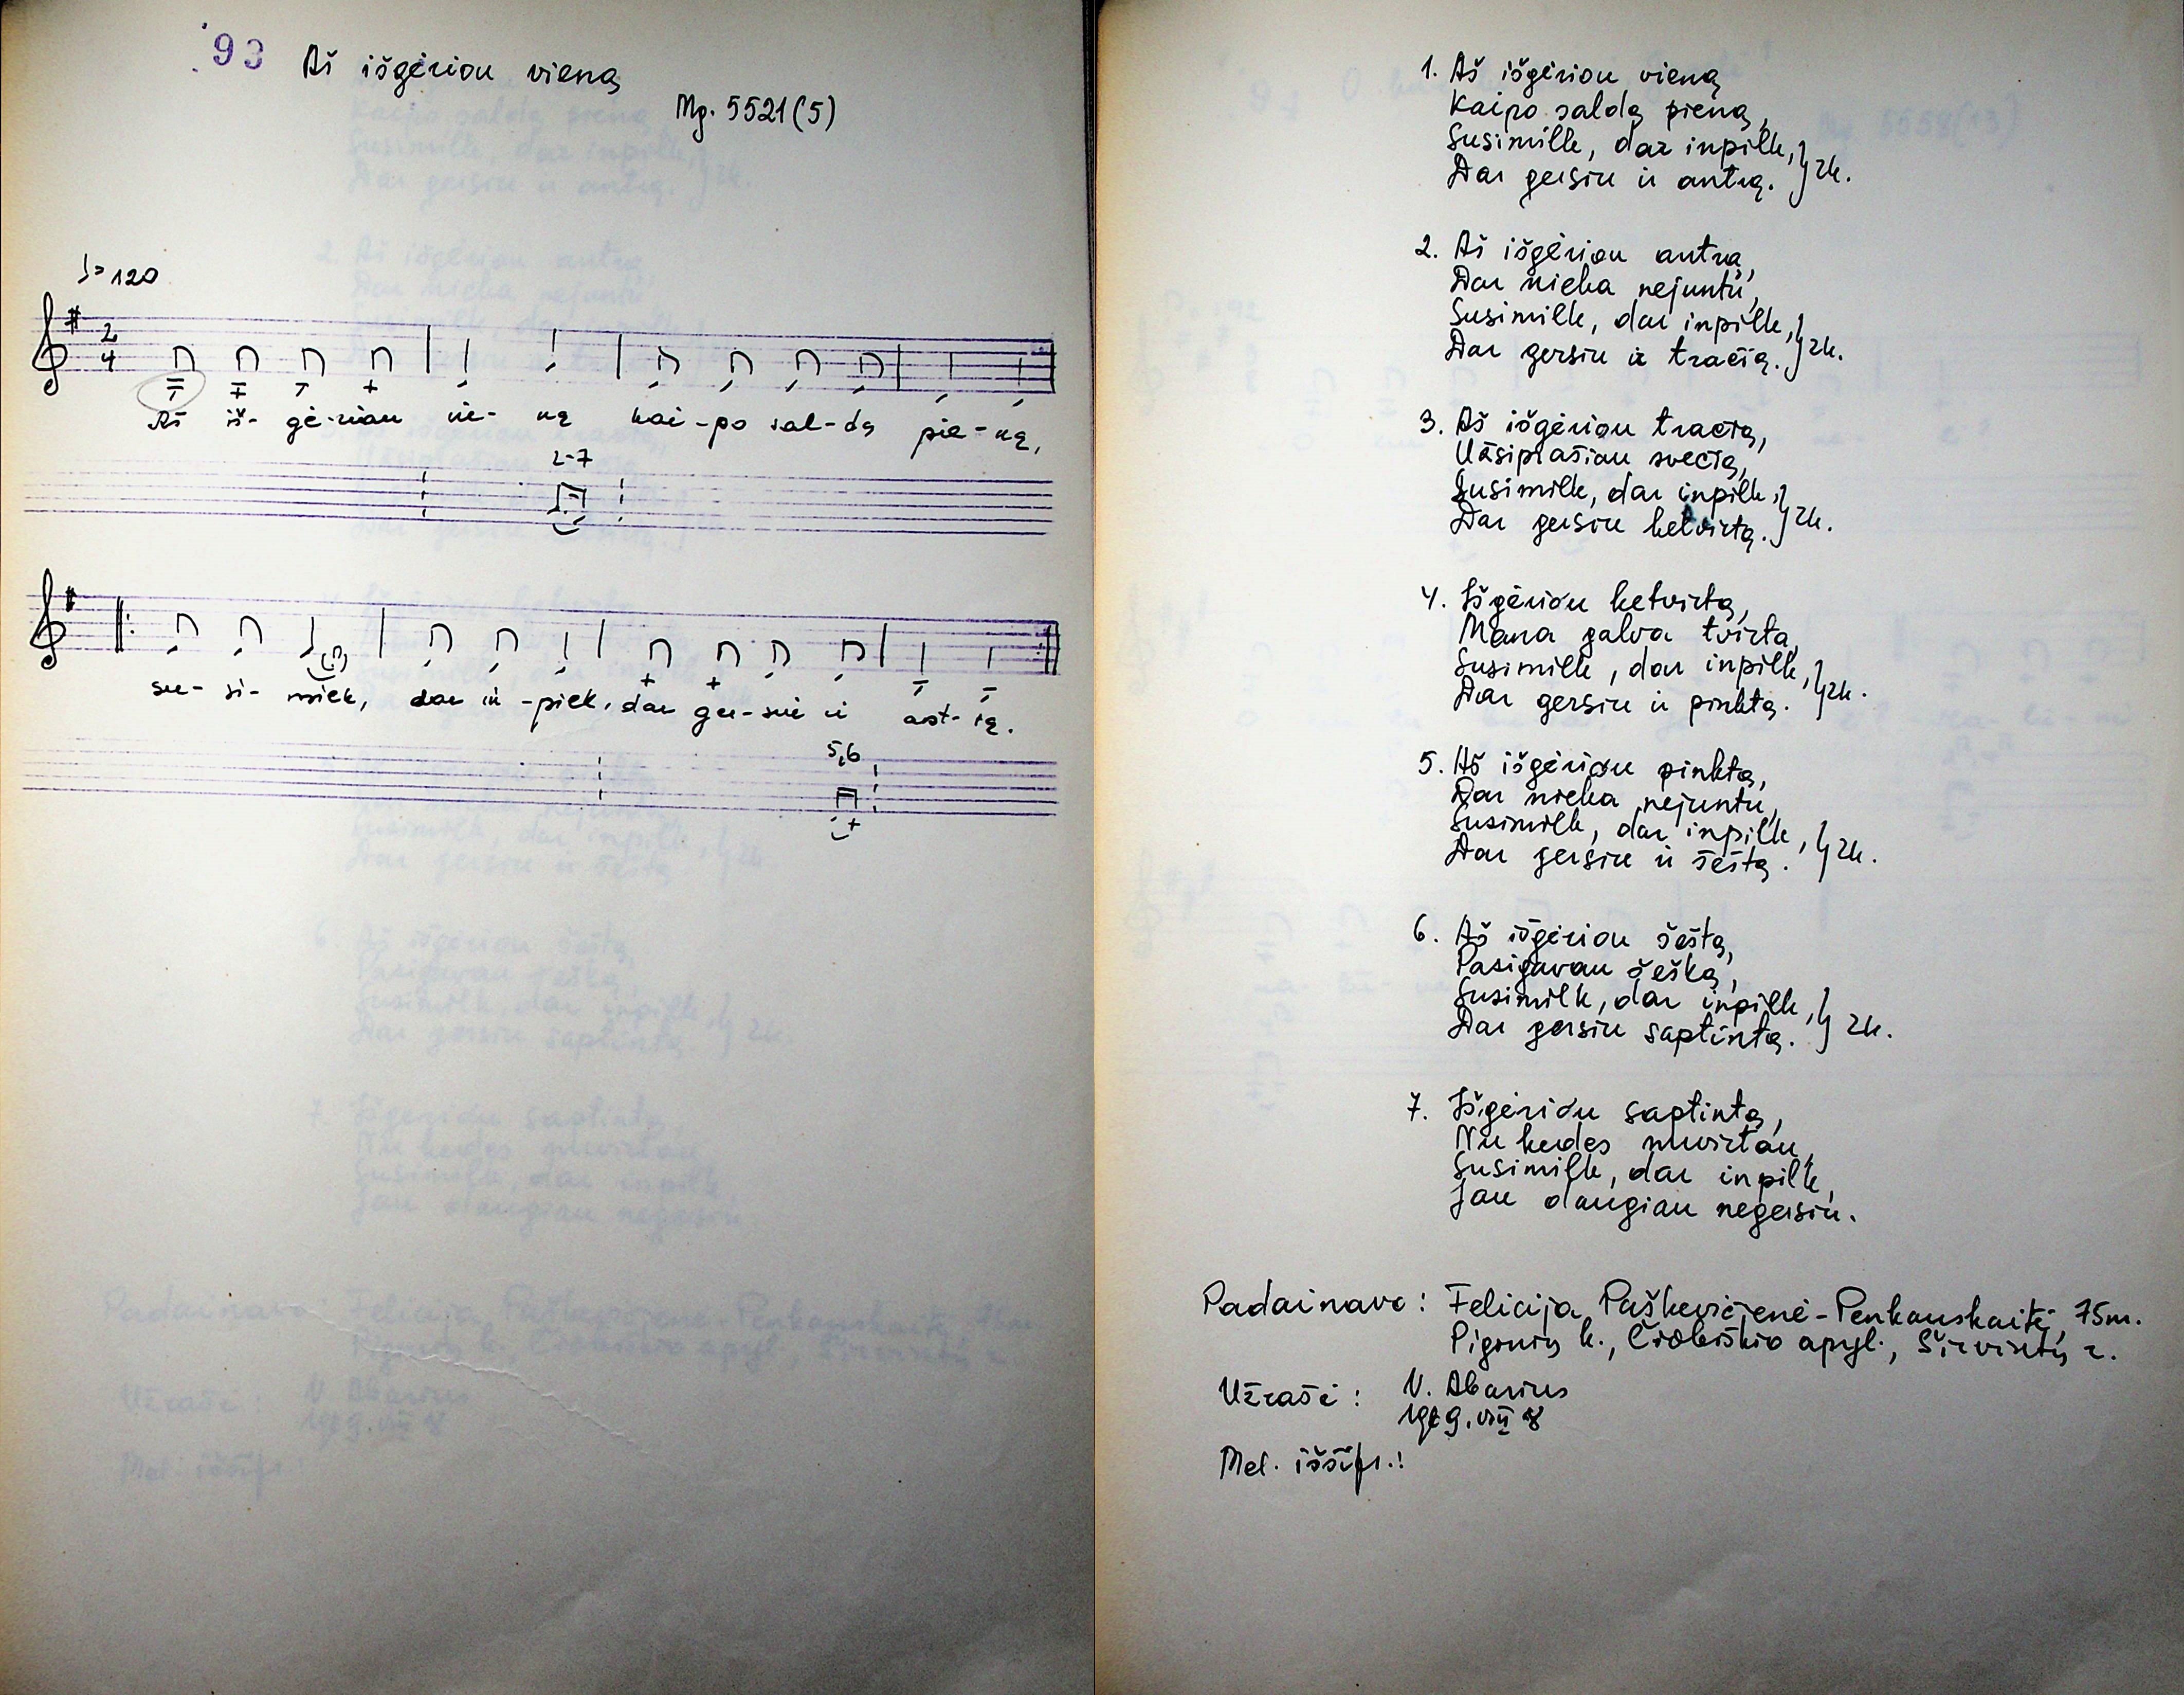 93 Aš išgėriau vieną
Mg. 5521(5)
♩= 120
2
4
Aš iš- gė-riau vie- ną kai-po sal-dą pie-ną,
2-7
su- si- milk, dar in -pilk, dar ger-siu ir ant-rą.
5,6
1. Aš išgėriau vieną
Kaipo saldą pieną,
Susimilk, dar inpilk, } 2k.
Dar gersiu ir antrą.
2. Aš išgėriau antrą,
Dar nieka nejuntu,
Susimilk, dar inpilk, } 2k.
Dar gersiu ir tračią.
3. Aš išgėriau tračią,
Užsiprašiau svečią,
Susimilk, dar inpilk, } 2k.
Dar gersiu ketvirtą.
4. Išgėriau ketvirtą,
Mana galva tvirta,
Susimilk, dar inpilk, } 2k.
Dar gersiu ir pinktą.
5. Aš išgėriau pinktą,
Dar nieka nejuntu,
Susimilk, dar inpilk, } 2k.
Dar gersiu ir šeštą.
6. Aš išgėriau šeštą,
Pasigavau šešką,
Susimilk, dar inpilk, } 2k.
Dar gersiu saptintą.
7. Išgėriau saptintą,
Nu kedes nuvirtau,
Susimilk, dar inpilk,
Jau daugiau negersiu.
Padainavo: Felicija Paškevičienė-Penkauskaitė, 75m.
Pigonių k., Čiobiškio apyl., Širvintų r.
Užrašė: V. Abarius
VIII
Mel. iššifr.: